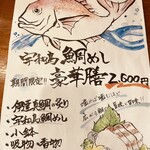 宇和島 鯛めし
期間限定!! 豪華膳 2,600円
・伊達真鯛の炙り
・宇和島鯛めし
・小鉢
・吸物・香物